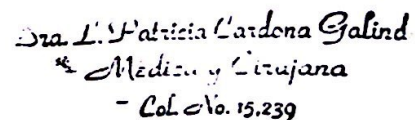 Dra. L. Patricia Cardona Galind
Médica y Cirujana
- Col. No. 15,239